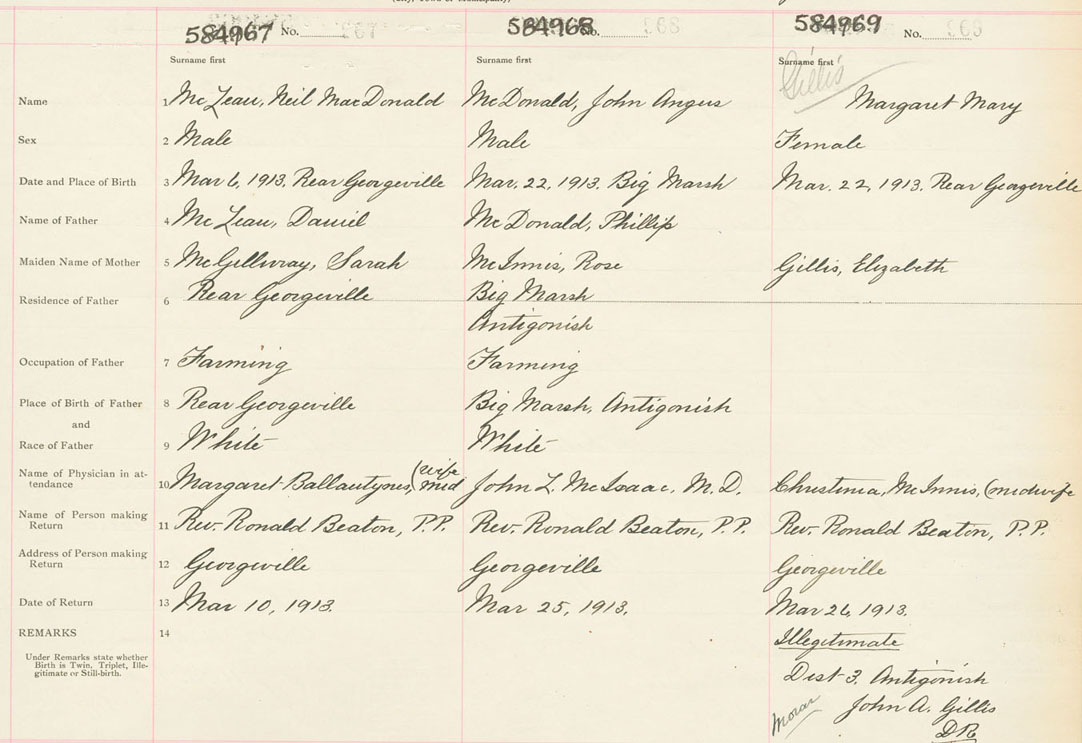 584967 No. 967
584968 No. 968
584969 No. 969
Surname first
Surname first
Surname first
Gillis
Name 1 McLean, Neil MacDonald McDonald, John Angus Margaret Mary
Sex 2 Male Male Female
Date and Place of Birth 3 Mar 6, 1913. Rear Georgeville Mar. 22, 1913. Big Marsh Mar. 22, 1913. Rear Georgeville
Name of Father 4 McLean, Daniel McDonald, Phillip
Maiden Name of Mother 5 McGillivray, Sarah McInnis, Rose Gillis, Elizabeth
Residence of Father 6 Rear Georgeville Big Marsh
Antigonish
Occupation of Father 7 Farming Farming
Place of Birth of Father 8 Rear Georgeville Big Marsh, Antigonish
and
Race of Father 9 White White
Name of Physician in at-
tendance 10 Margaret Ballantyne, (mid
wife John L. McIsaac, M.D. Christinia, McInnis, (midwife
Name of Person making
Return 11 Rev. Ronald Beaton, P.P. Rev. Ronald Beaton, P.P. Rev. Ronald Beaton, P.P.
Address of Person making
Return 12 Georgeville Georgeville Georgeville
Date of Return 13 Mar 10, 1913. Mar 25, 1913. Mar 26, 1913.
REMARKS 14 Illegitimate
Under Remarks state whether
Birth is Twin, Triplet, Ille-
gitimate or Still-birth.
Dist 3. Antigonish
John A. Gillis
DR